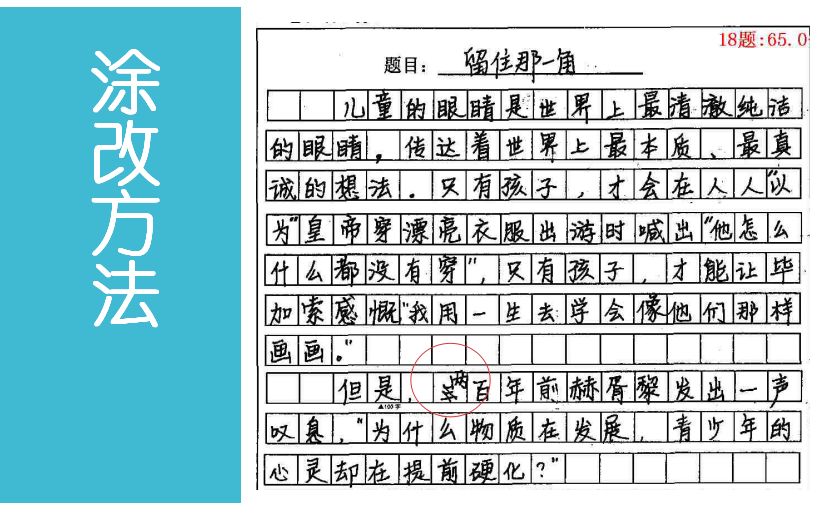 涂改方法
18题:65.0
题目：留住那一角
儿童的眼睛是世界上最清澈纯洁
的眼睛，传达着世界上最本质、最真
诚的想法。只有孩子，才会在人人“以
为“皇帝穿漂亮衣服出游时喊出“他怎么
什么都没有穿”，只有孩子，才能让毕
加索感慨“我用一生去学会像他们那样
画画。”
但是，两百年前赫胥黎发出一声
▲100字
叹息，“为什么物质在发展，青少年的
心灵却在提前硬化？”